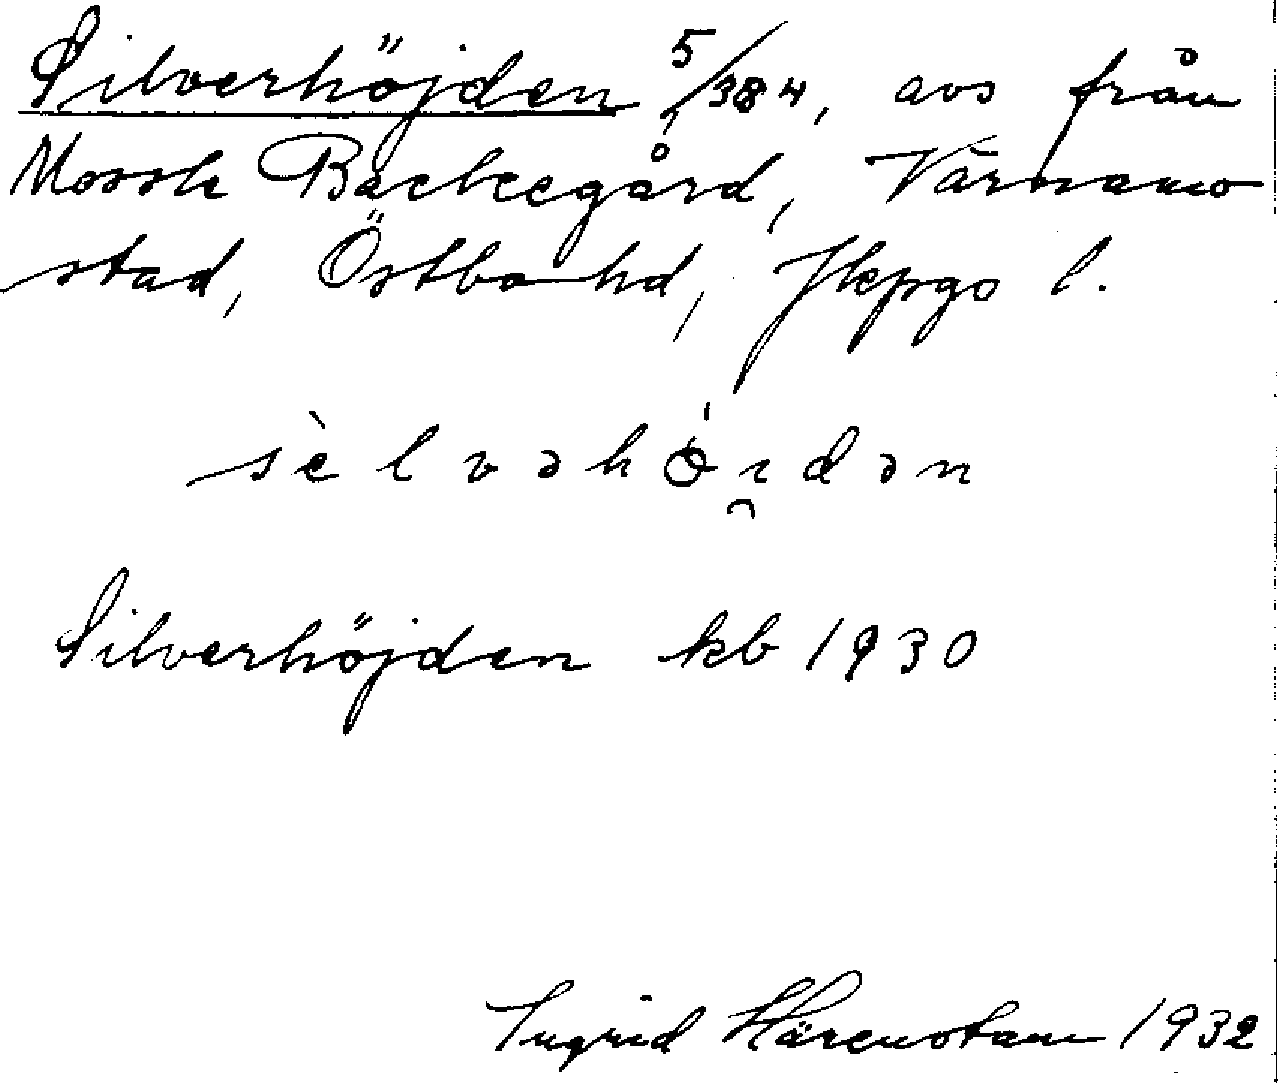 Silverhöjden 5/384, avs från
Mossle Backegård, Värnamo
stad, Östbo hd, Jkpgs l.
sèlvəhö́i̯dən
Silverhöjden kb 1930
Ingrid Härenstam 1932